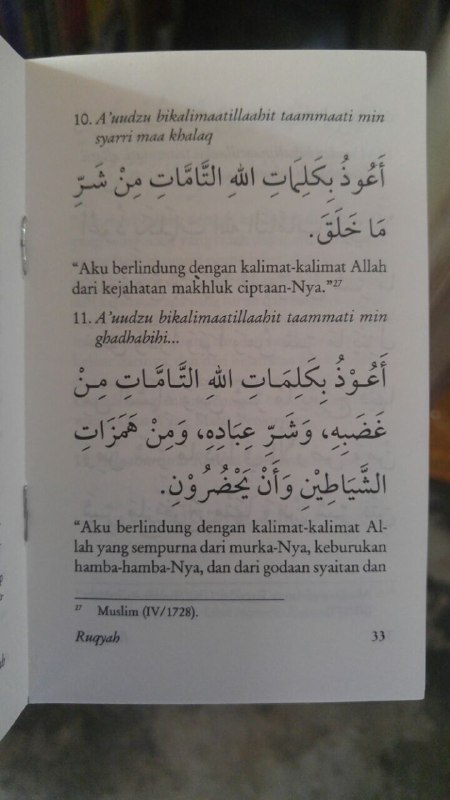 10. A'uudzu bikalimaatillaahit taammaati min
syarri maa khalaq
أَعُوذُ بِكَلِمَاتِ اللهِ التَّامَّاتِ مِنْ شَرِّ
مَا خَلَقَ.
“Aku berlindung dengan kalimat-kalimat Allah
dari kejahatan makhluk ciptaan-Nya.”27
11. A'uudzu bikalimaatillaahit taammati min
ghadhabihi...
أَعُوْذُ بِكَلِمَاتِ اللهِ التَّامَّاتِ مِنْ
غَضَبِهِ، وَشَرِّ عِبَادِهِ، وَمِنْ هَمَزَاتِ
الشَّيَاطِيْنِ وَأَنْ يَحْضُرُوْنِ.
“Aku berlindung dengan kalimat-kalimat Al-
lah yang sempurna dari murka-Nya, keburukan
hamba-hamba-Nya, dan dari godaan syaitan dan
27 Muslim (IV/1728).
Ruqyah 33